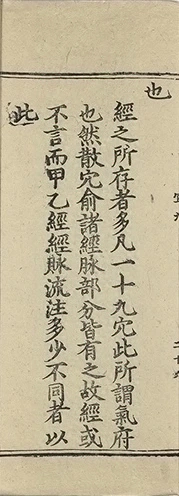 也
經之所存者多凡一十九穴此所謂氣府
也然散穴俞諸經脉部分皆有之故經或
不言而甲乙經經脉流注多少不同者以
此